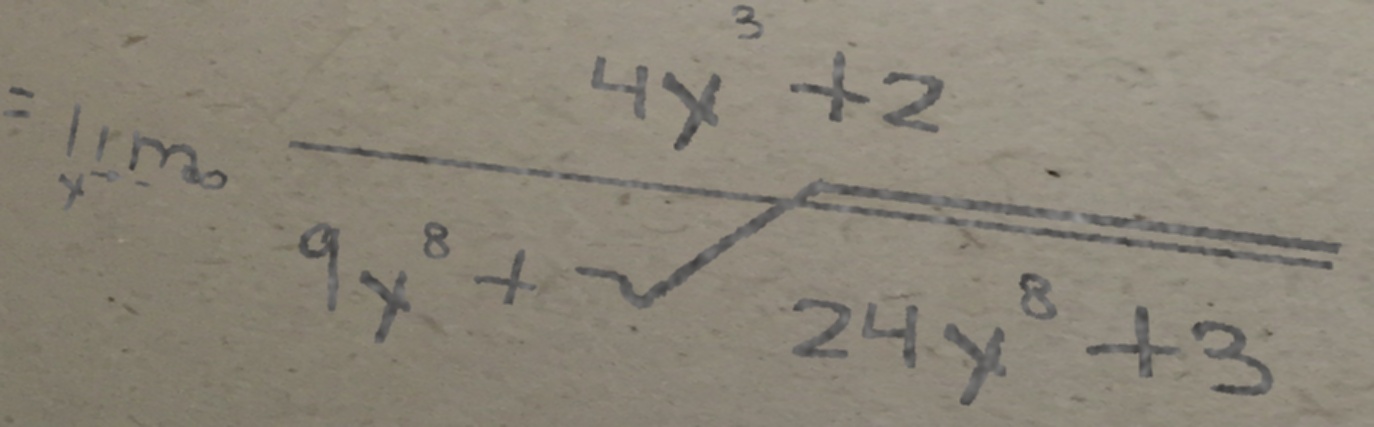 = lim y→-∞ (4y³ + 2) / (9y⁸ + √(24y⁸ + 3))